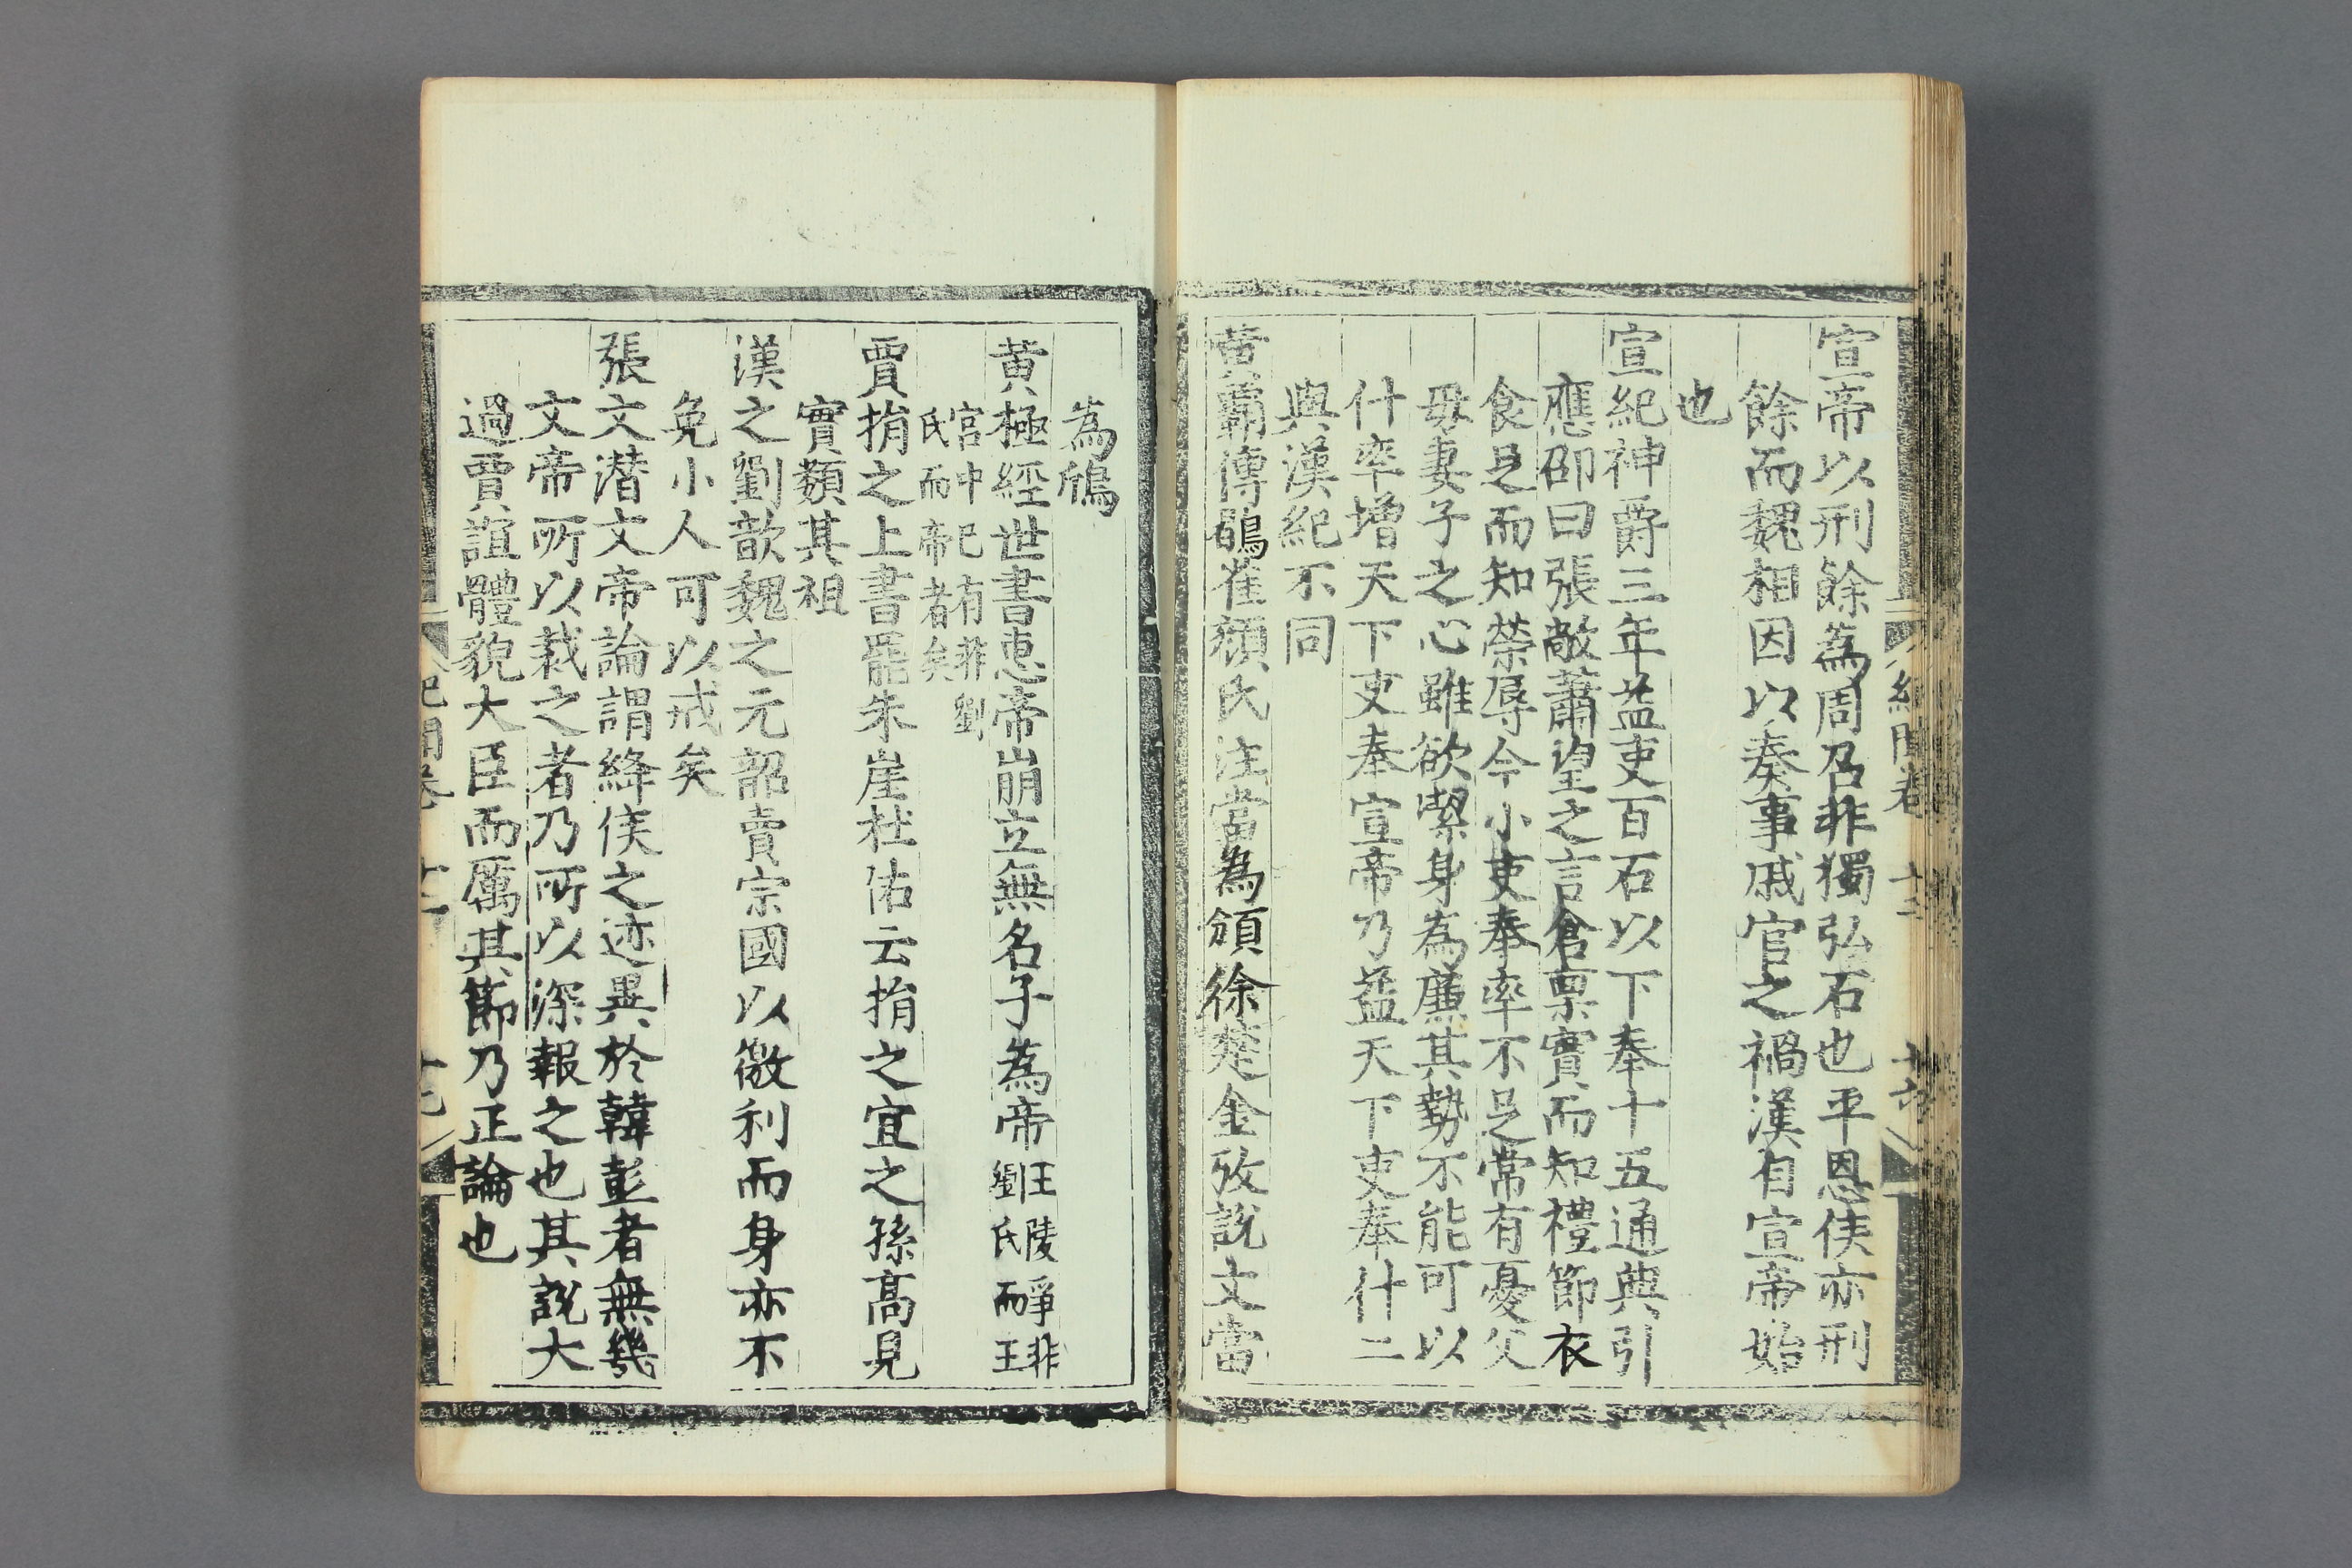 宣帝以刑餘為周召非獨弘石也平恩侯亦刑
餘而魏相因以奏事戚宦之禍漢自宣帝始
也
宣紀神爵三年益吏百石以下奉十五通典引
應邵曰張敞蕭望之言倉稟實而知禮節衣
食足而知榮辱今小吏奉率不足常有憂父
母妻子之心雖欲潔身為廉其勢不能可以
什率增天下吏奉宣帝乃益天下吏奉什二
與漢紀不同
黃霸傳鶡雀顏氏注當為鳻徐楚金攷說文當
為鳻
黃極經世書惠帝崩立無名子為帝王陵爭非劉氏而王
宮中已有非劉氏而帝者矣
賈捐之上書罷朱崖杜佑云捐之宜之孫高見
實類其祖
漢之劉歆魏之元韶賣宗國以徼利而身亦不
免小人可以戒矣
張文潛文帝論謂絳侯之迹異於韓彭者無幾
文帝所以裁之者乃所以深報之也其說大
過賈誼體貌大臣而厲其節乃正論也